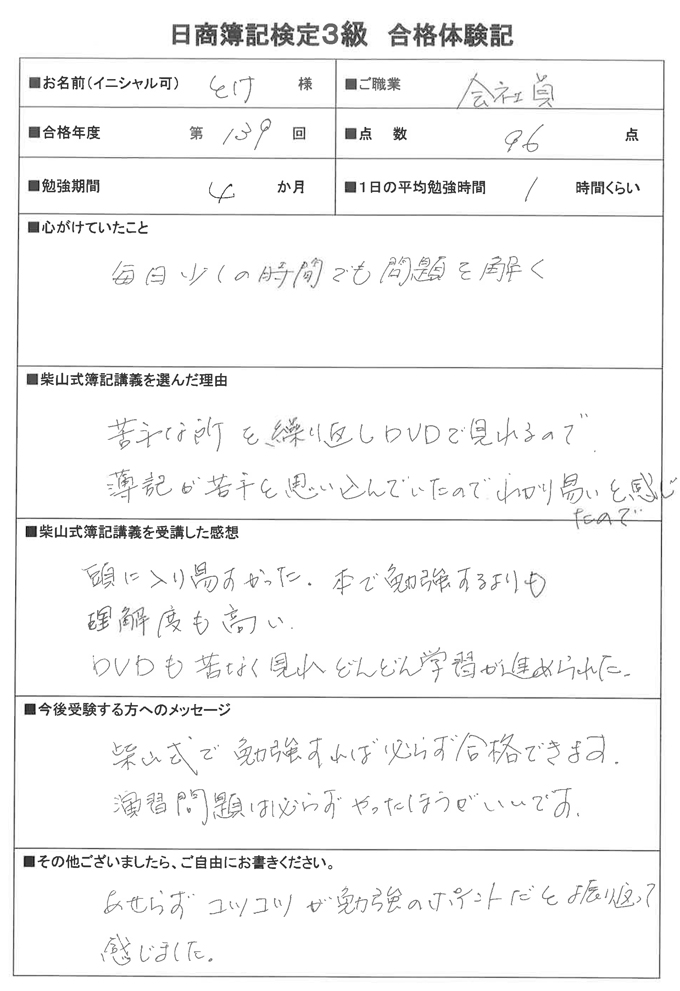 日商簿記検定3級 合格体験記
■お名前(イニシャル可) とけ 様 ■ご職業 会社員
■合格年度 第 139 回 ■点 数 96 点
■勉強期間 4 か月 ■1日の平均勉強時間 1 時間くらい
■心がけていたこと
毎日少しの時間でも問題を解く
■柴山式簿記講義を選んだ理由
苦手な所を繰り返しDVDで見れるので
薄記が苦手と思い込んでいたのでわかり易いと感じ
たので
■柴山式簿記講義を受講した感想
頭に入り易すかった。本で勉強するよりも
理解度も高い。
DVDも苦なく見れどんどん学習が進められた。
■今後受験する方へのメッセージ
柴山式で勉強すれば必らず合格できます。
演習問題は必らずやったほうがいいです。
■その他ございましたら、ご自由にお書きください。
あせらずコツコツが勉強のポイントだと振り返って
感じました。